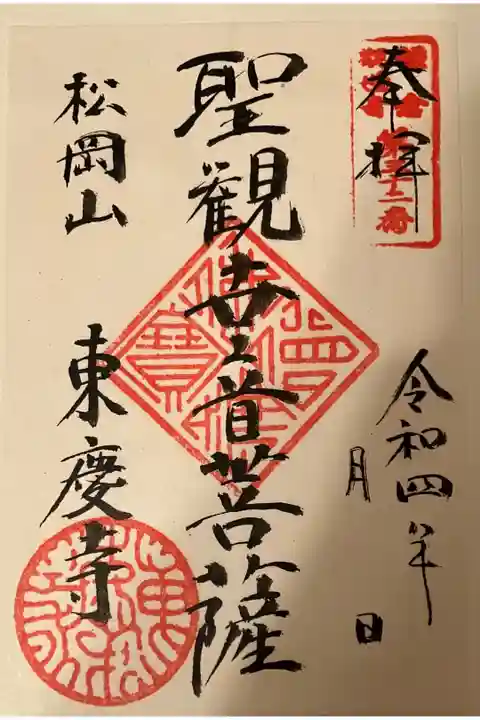 奉拝
第三十二番
令和四年
月
日
聖観世音菩薩
松岡山
東慶寺